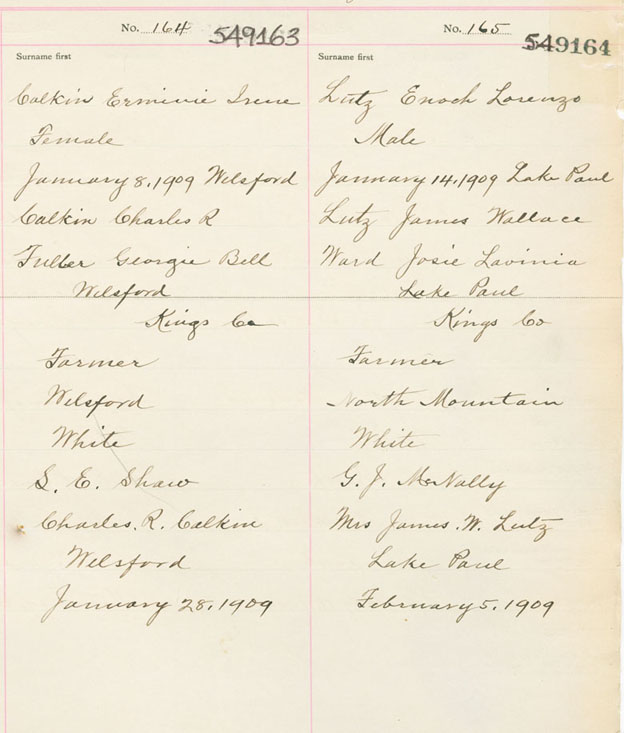 No. 164 549163
Surname first
Calkin Erminie Irene
Female
January 8, 1909 Welsford
Calkin Charles R
Fuller Georgie Bell
Welsford
Kings Co
Farmer
Welsford
White
S. E. Shaw
Charles. R. Calkin
Welsford
January 28, 1909
No. 165 549164
Surname first
Lutz Enoch Lorenzo
Male
January 14, 1909 Lake Paul
Lutz James Wallace
Ward Josie Lavinia
Lake Paul
Kings Co
Farmer
North Mountain
White
G. J. McNally
Mrs James. W. Lutz
Lake Paul
February 5, 1909